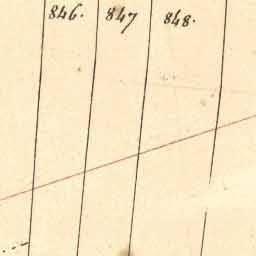 846. 847 848.